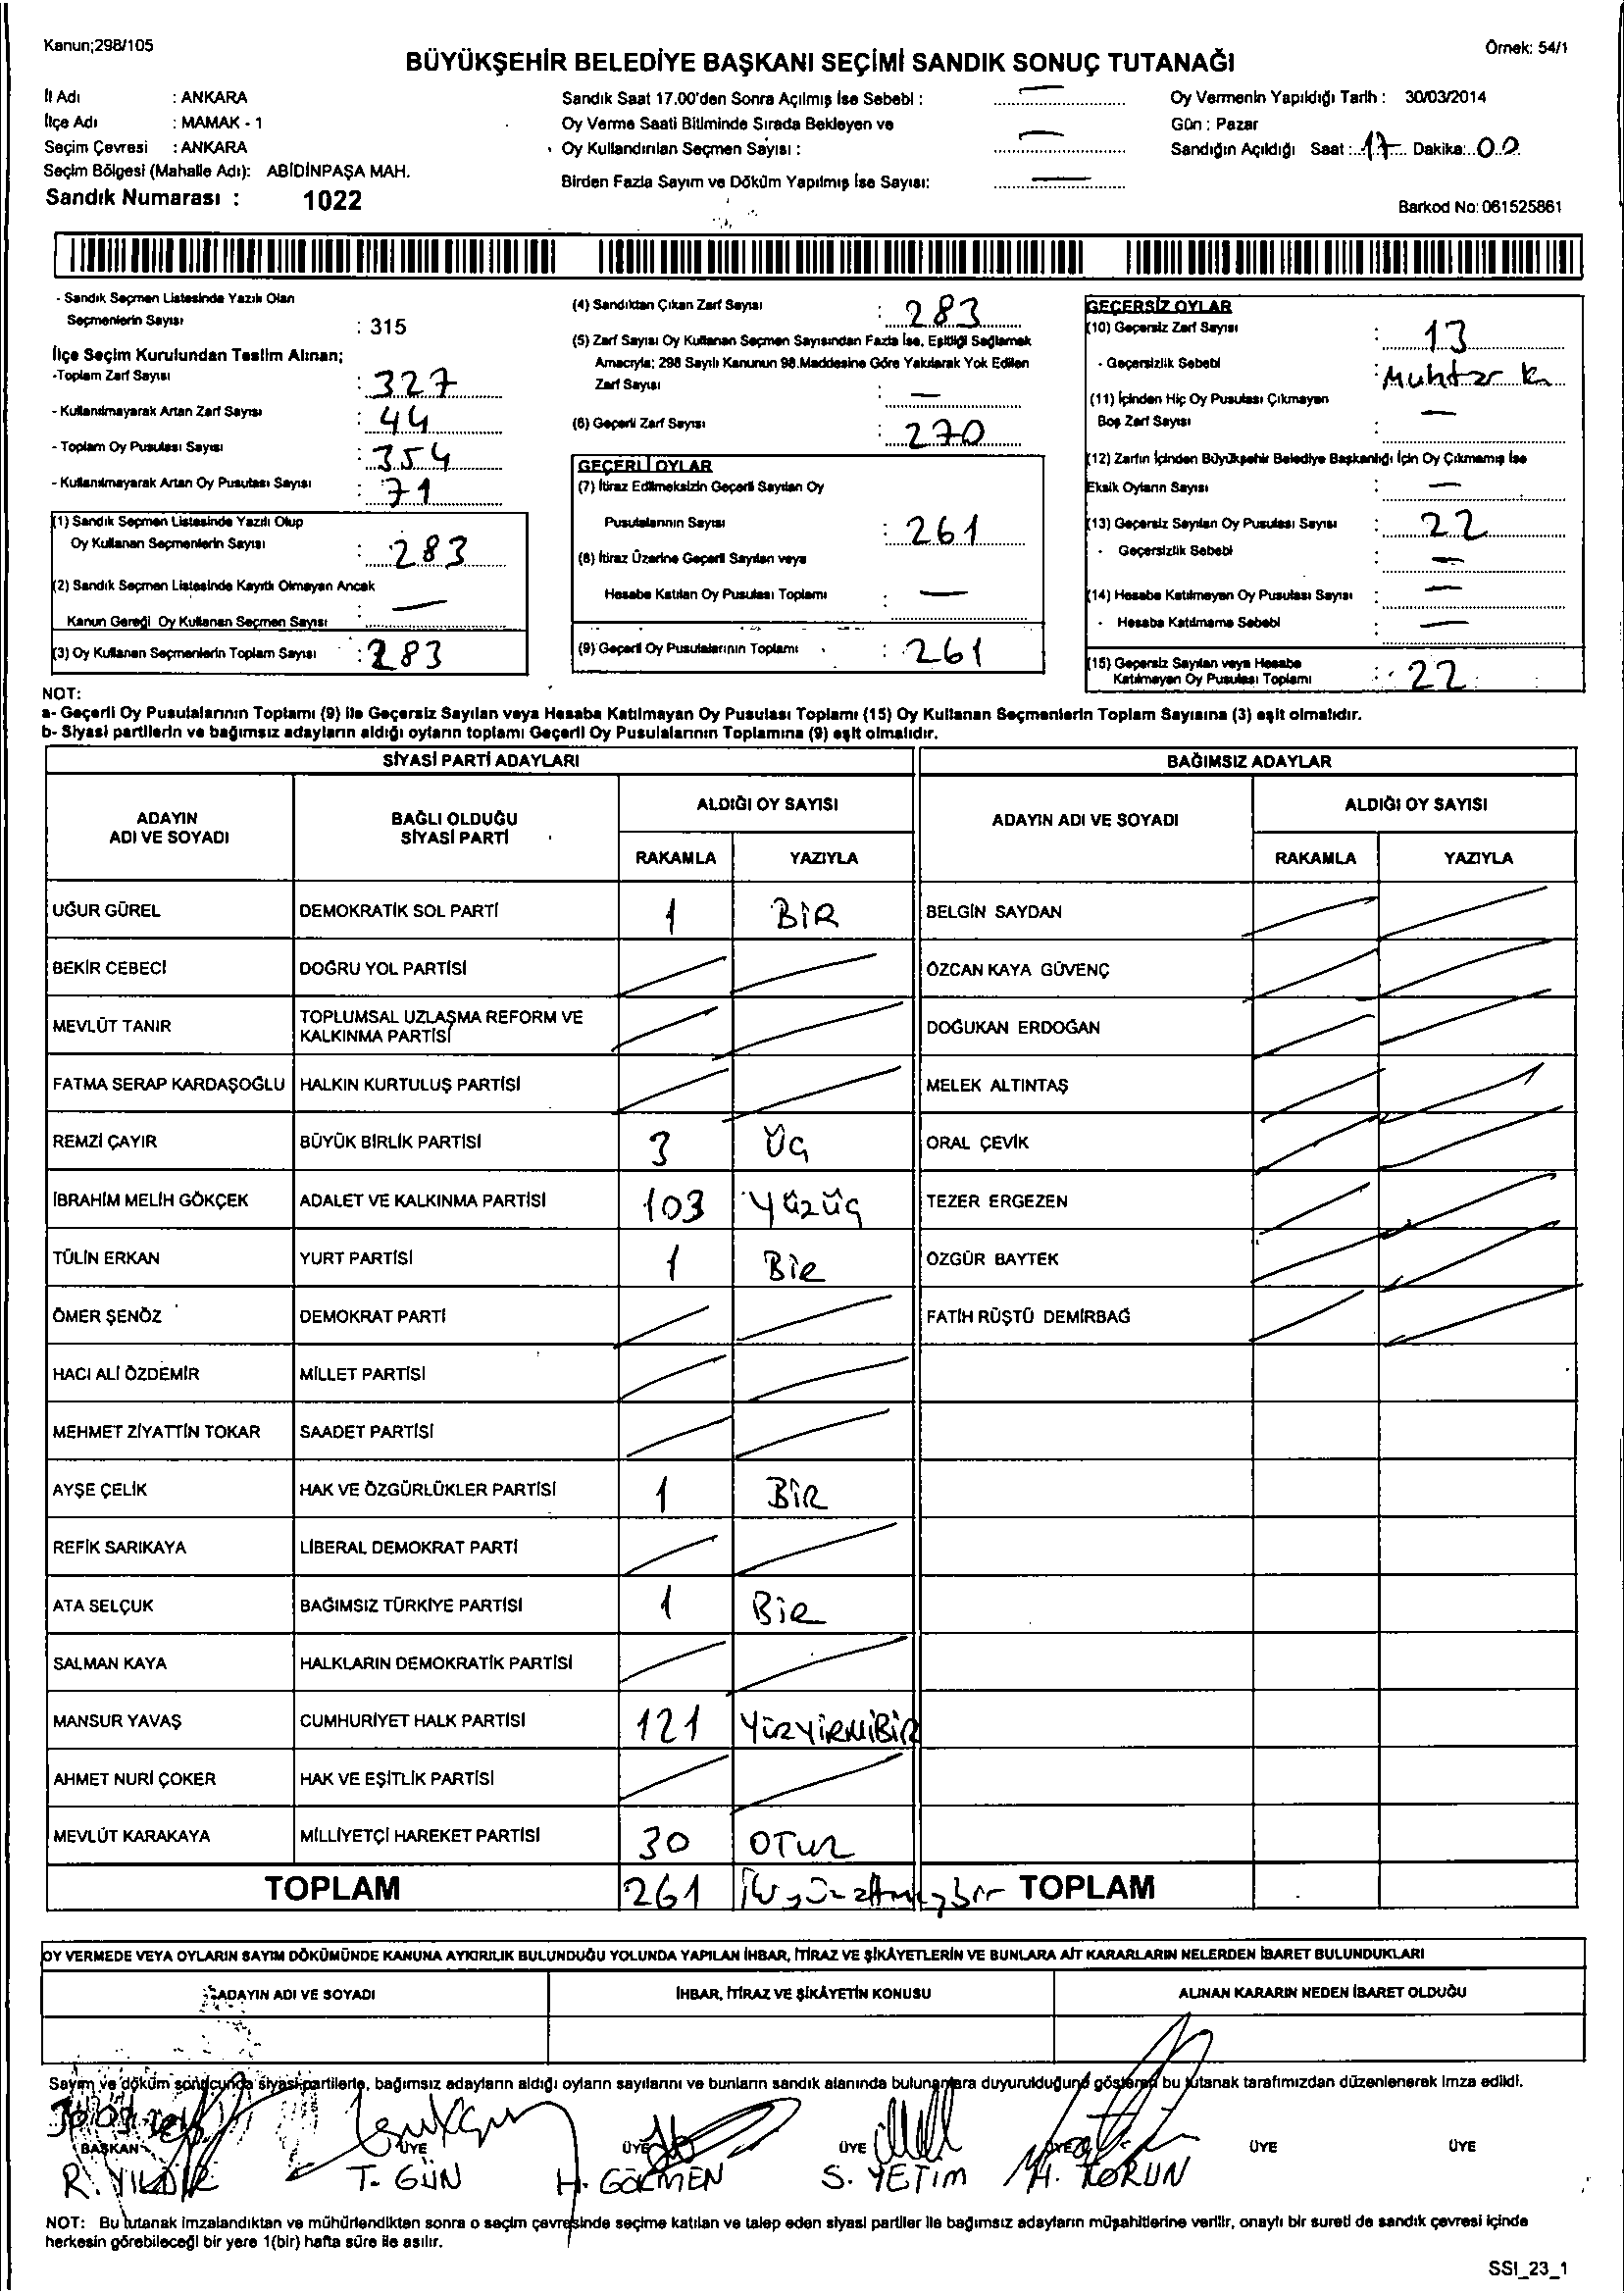 Kanun;298/105
Örnek: 54/1
BÜYÜKŞEHİR BELEDİYE BAŞKANI SEÇİMİ SANDIK SONUÇ TUTANAĞI
İl Adı : ANKARA
İlçe Adı : MAMAK - 1
Seçim Çevresi : ANKARA
Seçim Bölgesi (Mahalle Adı): ABİDİNPAŞA MAH.
Sandık Numarası : 1022
Sandık Saat 17.00'den Sonra Açılmış İse Sebebi : —
Oy Verme Saati Bitiminde Sırada Bekleyen ve
Oy Kullandırılan Seçmen Sayısı : —
Birden Fazla Sayım ve Döküm Yapılmış İse Sayısı: —
Oy Vermenin Yapıldığı Tarih : 30/03/2014
Gün : Pazar
Sandığın Açıldığı Saat : 17 Dakika: 00
Barkod No: 061525861
- Sandık Seçmen Listesinde Yazılı Olan
Seçmenlerin Sayısı : 315
İlçe Seçim Kurulundan Teslim Alınan;
-Toplam Zarf Sayısı : 327
- Kullanılmayarak Artan Zarf Sayısı : 44
- Toplam Oy Pusulası Sayısı : 354
- Kullanılmayarak Artan Oy Pusulası Sayısı : 71
(1) Sandık Seçmen Listesinde Yazılı Olup
Oy Kullanan Seçmenlerin Sayısı : 283
(2) Sandık Seçmen Listesinde Kayıtlı Olmayan Ancak
Kanun Gereği Oy Kullanan Seçmen Sayısı : —
(3) Oy Kullanan Seçmenlerin Toplam Sayısı : 283
(4) Sandıktan Çıkan Zarf Sayısı : 283
(5) Zarf Sayısı Oy Kullanan Seçmen Sayısından Fazla İse, Eşitliği Sağlamak
Amacıyla; 298 Sayılı Kanunun 98.Maddesine Göre Yakılarak Yok Edilen
Zarf Sayısı : —
(6) Geçerli Zarf Sayısı : 270
GEÇERLİ OYLAR
(7) İtiraz Edilmeksizin Geçerli Sayılan Oy
Pusulalarının Sayısı : 261
(8) İtiraz Üzerine Geçerli Sayılan veya
Hesaba Katılan Oy Pusulası Toplamı : —
(9) Geçerli Oy Pusulalarının Toplamı : 261
GEÇERSİZ OYLAR
(10) Geçersiz Zarf Sayısı : 13
- Geçersizlik Sebebi : Muhtar
(11) İçinden Hiç Oy Pusulası Çıkmayan
Boş Zarf Sayısı : —
(12) Zarfın İçinden Büyükşehir Belediye Başkanlığı İçin Oy Çıkmamış İse
Eksik Oyların Sayısı : —
(13) Geçersiz Sayılan Oy Pusulası Sayısı : 22
- Geçersizlik Sebebi : —
(14) Hesaba Katılmayan Oy Pusulası Sayısı : —
- Hesaba Katılmama Sebebi : —
(15) Geçersiz Sayılan veya Hesaba
Katılmayan Oy Pusulası Toplamı : 22
NOT:
a- Geçerli Oy Pusulalarının Toplamı (9) ile Geçersiz Sayılan veya Hesaba Katılmayan Oy Pusulası Toplamı (15) Oy Kullanan Seçmenlerin Toplam Sayısına (3) eşit olmalıdır.
b- Siyasi partilerin ve bağımsız adayların aldığı oyların toplamı Geçerli Oy Pusulalarının Toplamına (9) eşit olmalıdır.
SİYASİ PARTİ ADAYLARI
BAĞIMSIZ ADAYLAR
ADAYIN
ADI VE SOYADI
BAĞLI OLDUĞU
SİYASİ PARTİ
ALDIĞI OY SAYISI
RAKAMLA
YAZIYLA
ADAYIN ADI VE SOYADI
ALDIĞI OY SAYISI
RAKAMLA
YAZIYLA
UĞUR GÜREL DEMOKRATİK SOL PARTİ 1 BİR BELGİN SAYDAN
BEKİR CEBECİ DOĞRU YOL PARTİSİ ÖZCAN KAYA GÜVENÇ
MEVLÜT TANIR TOPLUMSAL UZLAŞMA REFORM VE
KALKINMA PARTİSİ DOĞUKAN ERDOĞAN
FATMA SERAP KARDAŞOĞLU HALKIN KURTULUŞ PARTİSİ MELEK ALTINTAŞ
REMZİ ÇAYIR BÜYÜK BİRLİK PARTİSİ 3 ÜÇ ORAL ÇEVİK
İBRAHİM MELİH GÖKÇEK ADALET VE KALKINMA PARTİSİ 103 Yüzüç TEZER ERGEZEN
TÜLİN ERKAN YURT PARTİSİ 1 BİR ÖZGÜR BAYTEK
ÖMER ŞENÖZ DEMOKRAT PARTİ FATİH RÜŞTÜ DEMİRBAĞ
HACI ALİ ÖZDEMİR MİLLET PARTİSİ
MEHMET ZİYATTİN TOKAR SAADET PARTİSİ
AYŞE ÇELİK HAK VE ÖZGÜRLÜKLER PARTİSİ 1 BİR
REFİK SARIKAYA LİBERAL DEMOKRAT PARTİ
ATA SELÇUK BAĞIMSIZ TÜRKİYE PARTİSİ 1 BİR
SALMAN KAYA HALKLARIN DEMOKRATİK PARTİSİ
MANSUR YAVAŞ CUMHURİYET HALK PARTİSİ 121 YÜZYİRMİBİR
AHMET NURİ ÇOKER HAK VE EŞİTLİK PARTİSİ
MEVLÜT KARAKAYA MİLLİYETÇİ HAREKET PARTİSİ 30 OTUZ
TOPLAM 261 TOPLAM
OY VERMEDE VEYA OYLARIN SAYIM DÖKÜMÜNDE KANUNA AYKIRILIK BULUNDUĞU YOLUNDA YAPILAN İHBAR, İTİRAZ VE ŞİKÂYETLERİN VE BUNLARA AİT KARARLARIN NELERDEN İBARET BULUNDUKLARI
ADAYIN ADI VE SOYADI
İHBAR, İTİRAZ VE ŞİKÂYETİN KONUSU
ALINAN KARARIN NEDEN İBARET OLDUĞU
Sayım ve döküm sonucunda siyasi partilerle, bağımsız adayların aldığı oyların sayılarını ve bunların sandık alanında bulunanlara duyurulduğunu gösteren bu tutanak tarafımızdan düzenlenerek imza edildi.
BAŞKAN ÜYE ÜYE ÜYE ÜYE ÜYE ÜYE
R. YILDIZ T. GÜN H. GÖKMEN S. YETİM H. KORUN
NOT: Bu tutanak imzalandıktan ve mühürlendikten sonra o seçim çevresinde seçime katılan ve talep eden siyasi partiler ile bağımsız adayların müşahitlerine verilir, onaylı bir sureti de sandık çevresi içinde
herkesin görebileceği bir yere 1(bir) hafta süre ile asılır.
SSI_23_1